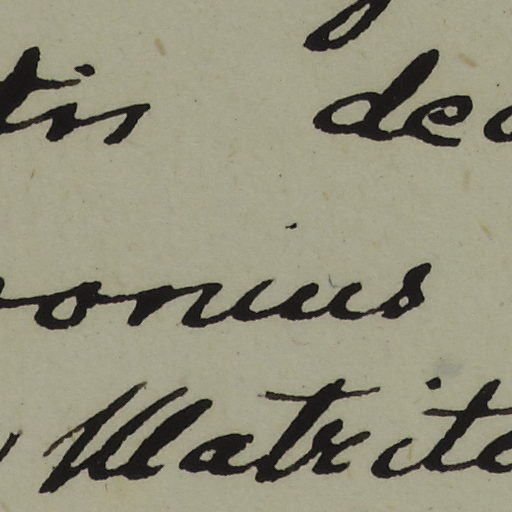 tis dec
onius
Matrite